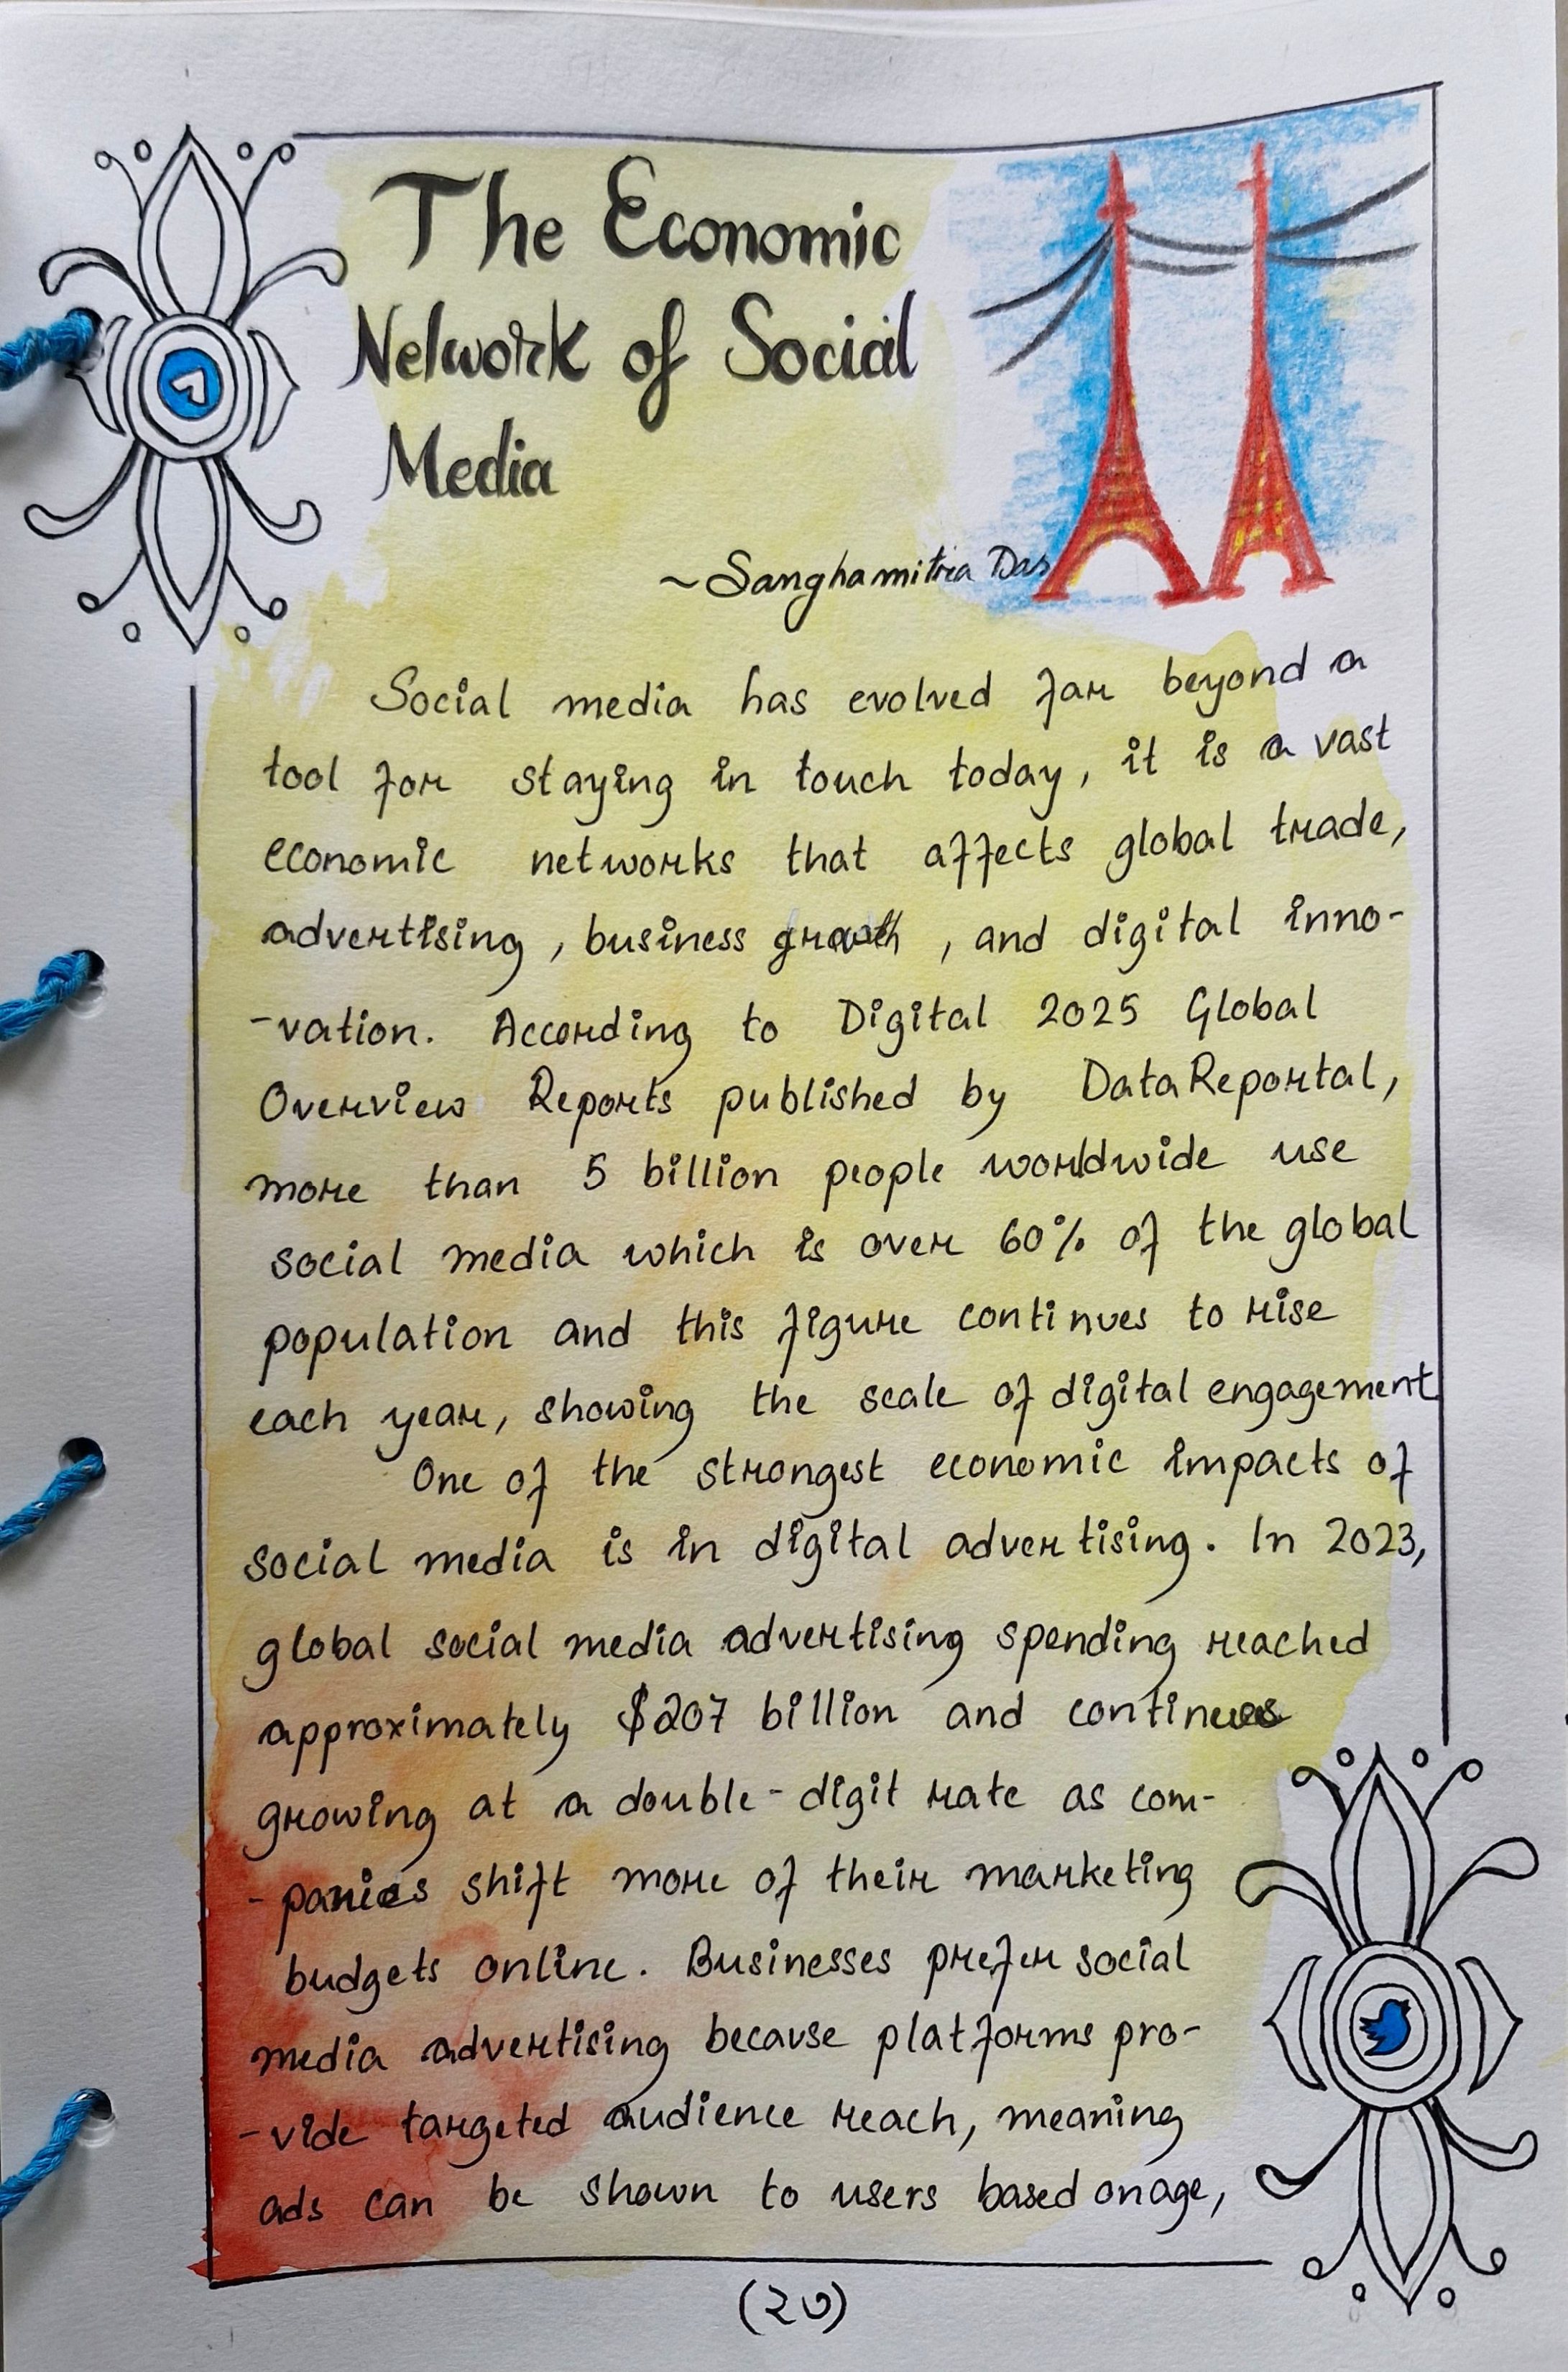 The Economic
Network of Social
Media
~Sanghamitra Das
Social media has evolved far beyond a
tool for staying in touch today, it is a vast
economic networks that affects global trade,
advertising, business growth, and digital inno-
-vation. According to Digital 2025 Global
Overview Reports published by DataReportal,
more than 5 billion people worldwide use
social media which is over 60% of the global
population and this figure continues to rise
each year, showing the scale of digital engagement
One of the strongest economic impacts of
social media is in digital advertising. In 2023,
global social media advertising spending reached
approximately $207 billion and continues
growing at a double-digit rate as com-
-panies shift more of their marketing
budgets online. Businesses prefer social
media advertising because platforms pro-
-vide targeted audience reach, meaning
ads can be shown to users based on age,
(২৩)